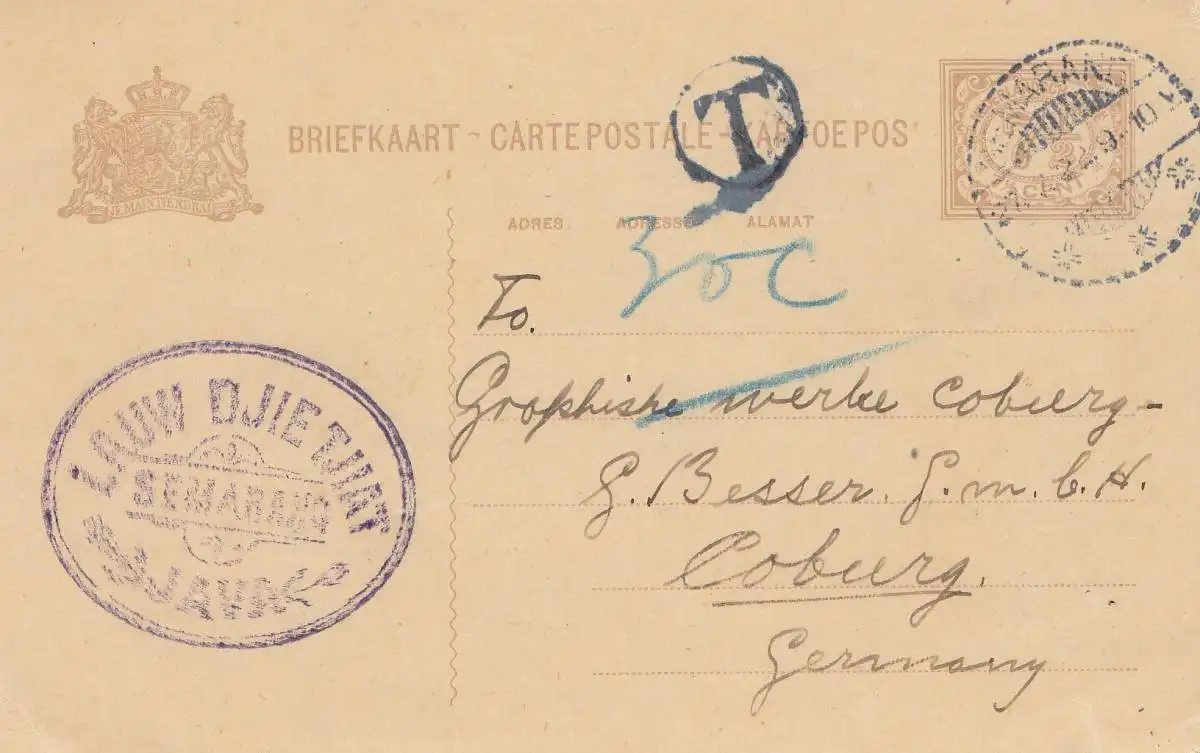 JE MAINTIENDRAI
BRIEFKAART - CARTE POSTALE - KARTOE POS
ADRES ADRESSE ALAMAT
T
SEMARANG
CENT
30c
To.
Graphishe werke Coburg-
G. Besser. G.m.b.H.
Coburg.
Germany
LAUW DJIE TJIAT
SEMARANG
JAVA